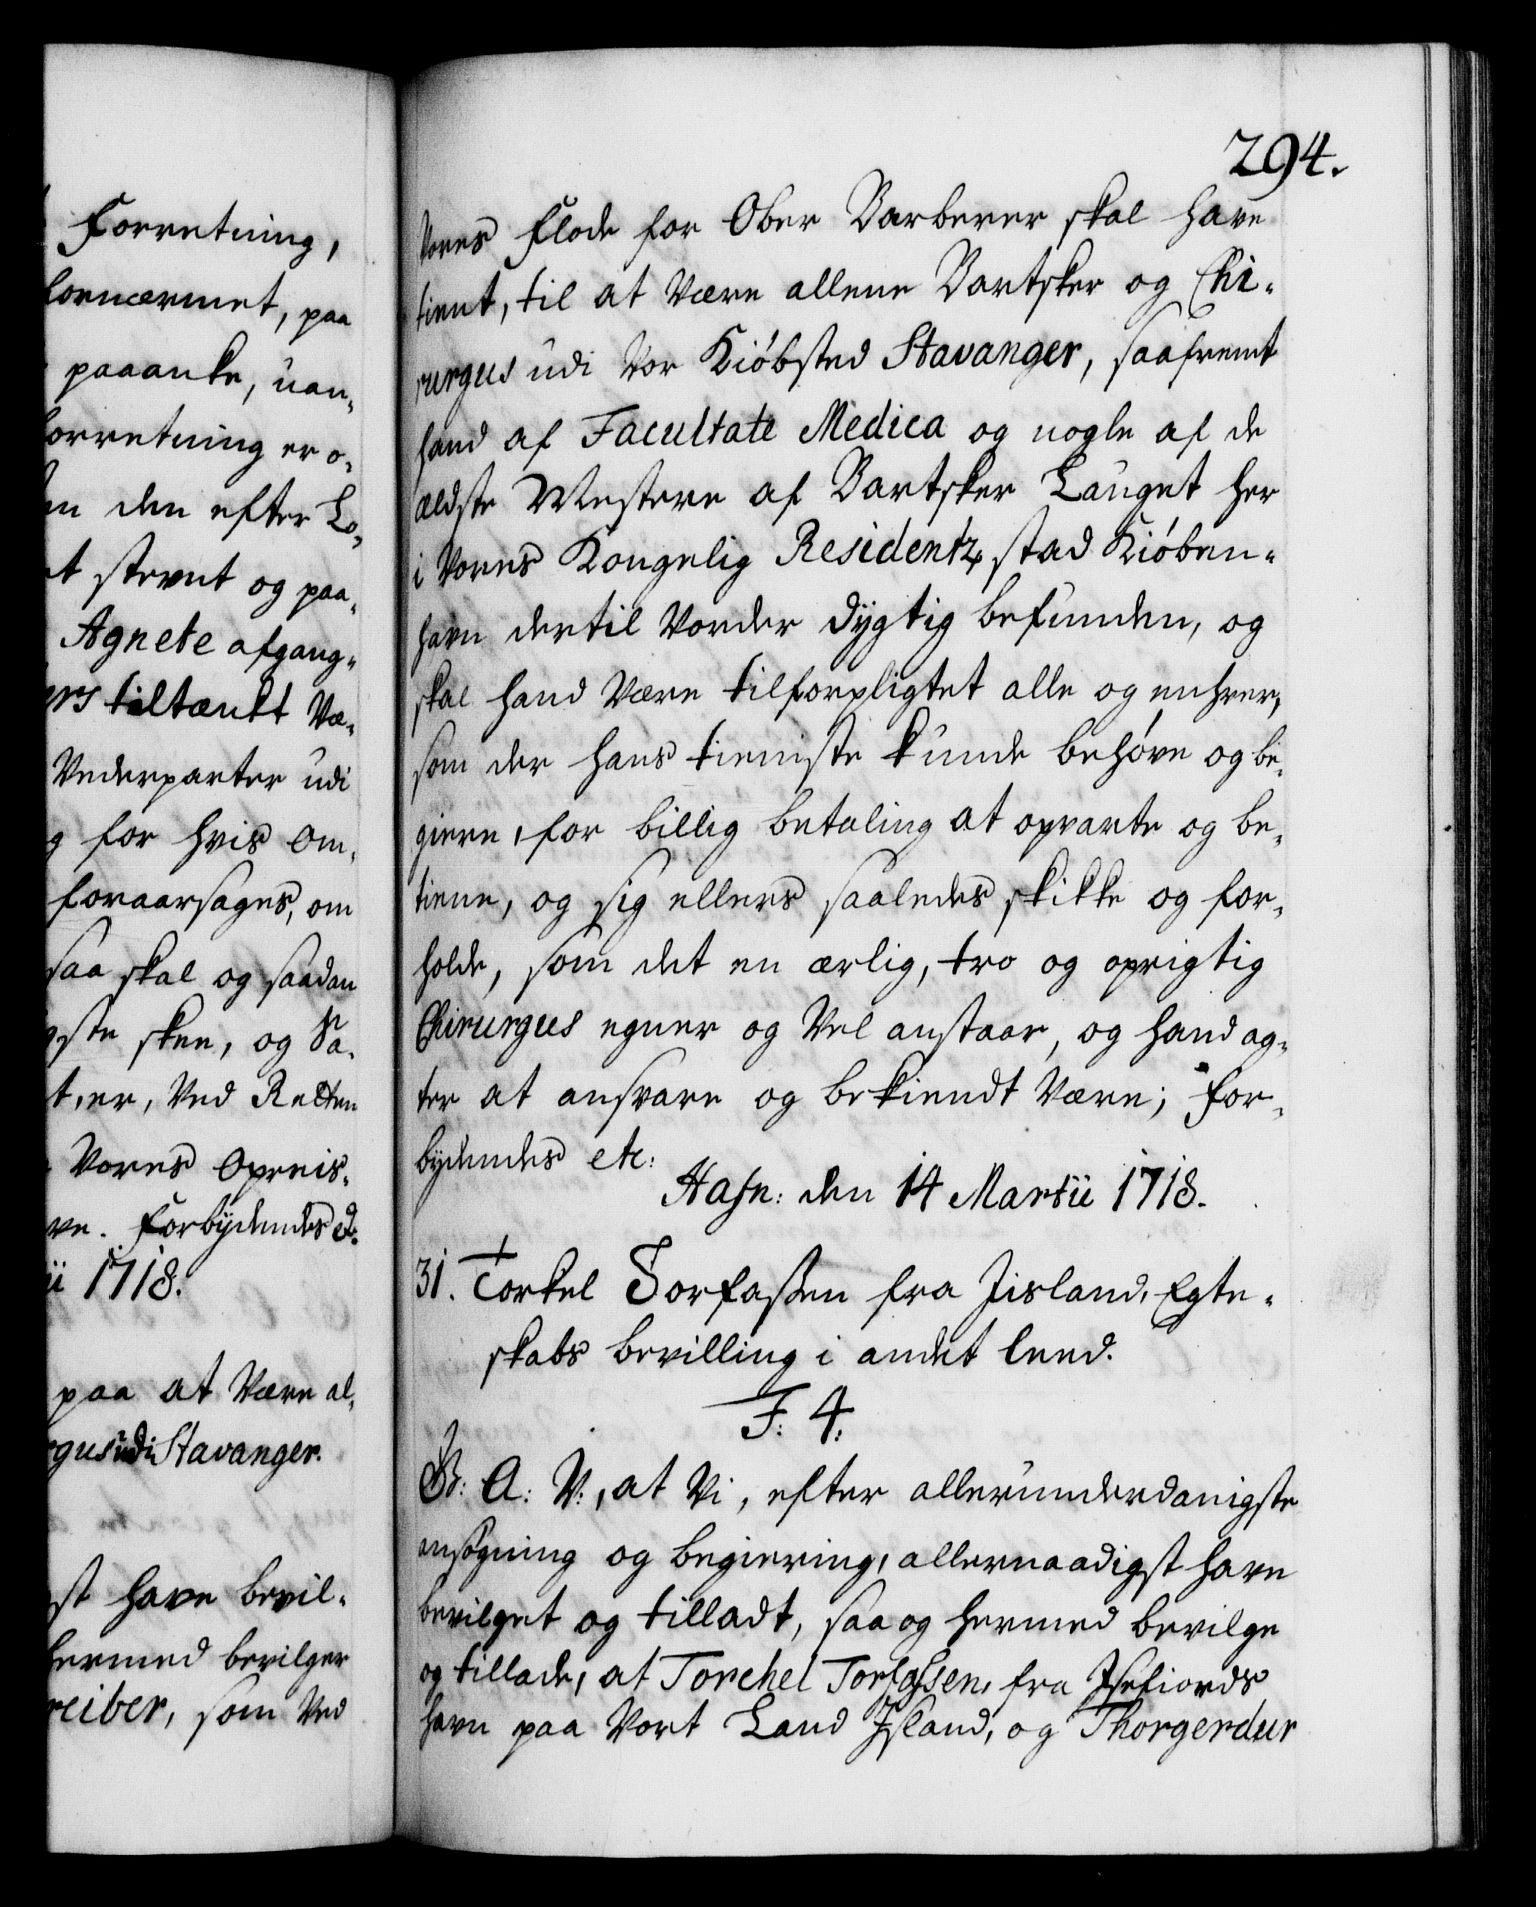 Forretning,
fornærmet, paa
paaanke, uan-
forretning er o-
den efter Lo-
stevnt og paa-
Agnete afgang-
tiltænkt Væ-
Vederparter udi
for hvis om-
foraarsages, om
saa skal og saadan
skee, og Sa-
er, Ved Retten
Vores Opreis-
Forbydendes etc.
1718.
paa at Være al-
udi Stavanger.
have bevil-
hermed bevilger
som Ved
294.
Vores Flode for Ober Barberer skal have
tient, til at Være allene Bartsker og Chi-
rurgus udi Vor Kiöbsted Stavanger, saafremt
hand af Facultate Medica og nogle af de
ældste Mestere af Bartsker Lauget her
i Vores Kongelig Residentz stad Kiöben-
havn dertil Vorder dygtig befunden, og
skal hand Være tilforpligtet alle og enhver,
som der hans tieniste kunde behöve og be-
giere, for billig betaling at opvarte og be-
tiene, og sig ellers saaledes skikke og for-
holde, som det en ærlig, tro og oprigtig
Chirurgus egner og Vel anstaar, og hand ag-
ter at ansvare og bekiendt Være; For-
bydendes etc:
Hafn: den 14 Martii 1718.
31. Torkel Torfassen fra Jisland, Egte-
skabs bevilling i andet leed.
F: 4:
G: A: V:, at Vi, efter allerunderdanigste
ansögning og begiering, allernaadigst have
bevilget og tilladt, saa og hermed bevilge
og tillade, at Torchel Torfassen, fra Isefiords
havn paa Vort Land Jsland, og Thorgerdur